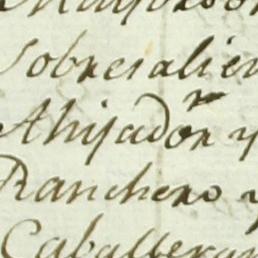 Sobresalien
Ahijador y
Ranchero y
Caballeran